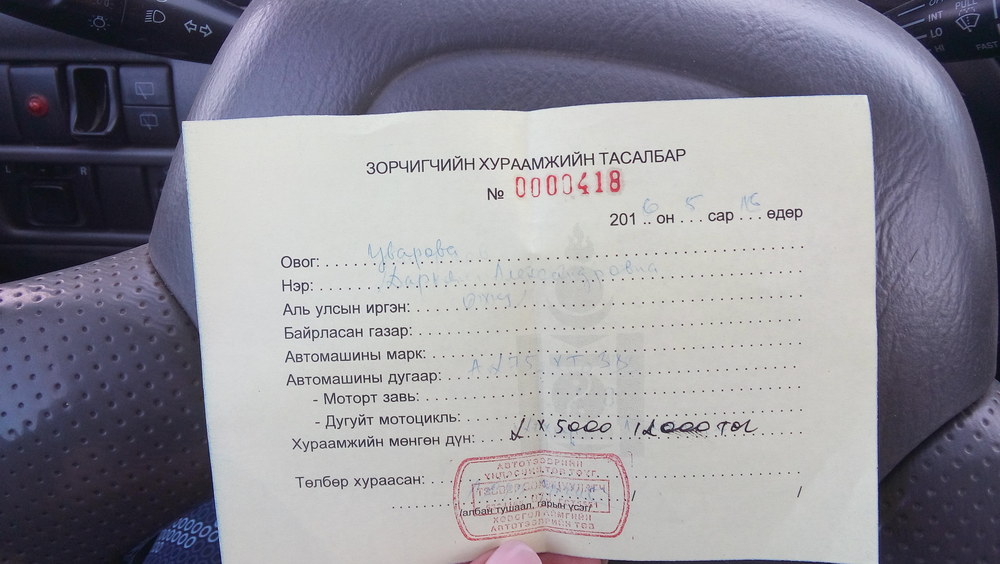 INT
LO
HI
PULL
FAST
ЗОРЧИГЧИЙН ХУРААМЖИЙН ТАСАЛБАР
№ 0000418
2016 он 5 сар 15 өдөр
Овог: Уварова
Нэр: Дарья Александровна
Аль улсын иргэн: ОХУ
Байрласан газар:
Автомашины марк:
Автомашины дугаар:
- Моторт завь:
- Дугуйт мотоцикль:
Хураамжийн мөнгөн дүн: 2 x 5000
Төлбөр хураасан:
/албан тушаал, гарын үсэг/
АВТОТЭЭВРИЙН
ХӨВСГӨЛ АЙМГИЙН
АВТОТЭЭВРИЙН ТӨВ